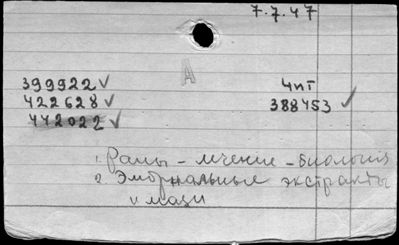 7.7.47
А
399922 ✓
чит
422628 ✓
388453 ✓
442022 ✓
1. Раны – лечение – биология
2. Эмбриальные экстракты
и мази